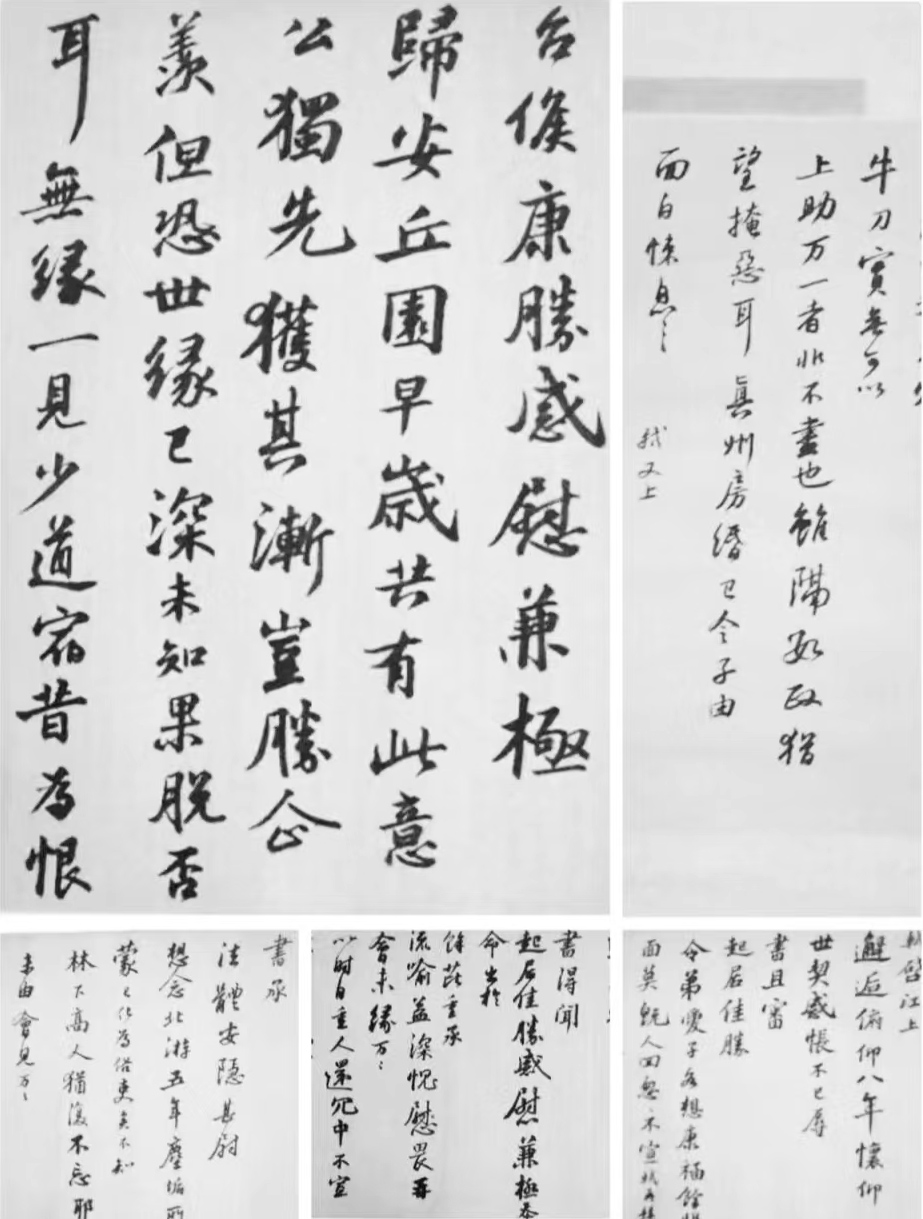 台候康勝感慰兼極
歸安丘園早歲共有此意
公獨先獲其漸豈勝企
羨但恐世緣已深未知果脫否
耳無緣一見少道宿昔為恨
牛刀實無可以
上助万一者非不盡也雖隔數政猶
望掩惡耳真州房緡已令子由
面白悚息々
軾又上
書承
法體安隱甚慰
想念北游五年塵垢所
蒙々化為俗吏矣不知
林下高人猶復不忘耶
未由會見万々
書得聞
起居佳勝感慰兼極忝
命出於
餘芘重承
流喻益深愧慰畏再
會未緣万々
以時自重人還冗中不宣
軾啓江上
邂逅俯仰八年懷仰
世契感悵不已辱
書且審
起居佳勝
令弟愛子各想康福餘
面莫既人回怱々不宣軾再拜